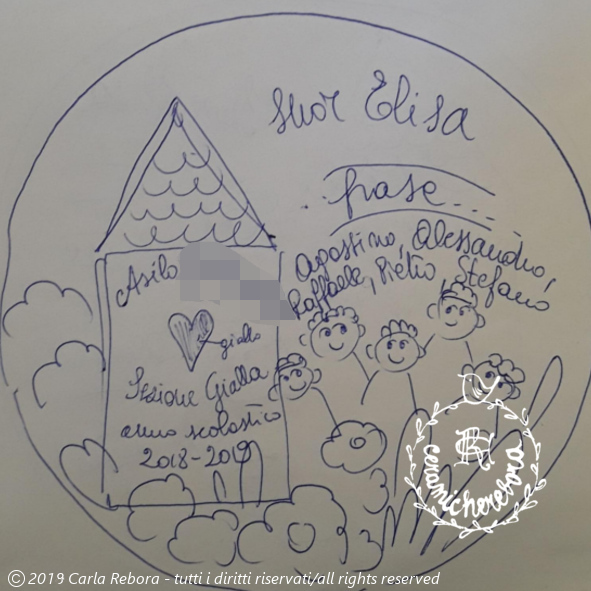 suor Elisa
frase....
Agostino, Alessandro,
Raffaele, Pietro, Stefano
Asilo
giallo
Sezione Gialla
anno scolastico
2018-2019
CR
ceramicherebora
© 2019 Carla Rebora - tutti i diritti riservati/all rights reserved